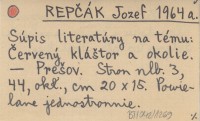 REPČÁK Jozef 1964 a.
Súpis literatúry na tému:
Červený kláštor a okolie.
— Prešov. Stron nlb. 3,
44, okł., cm 20 x 15. Powie-
lane jednostronnie.